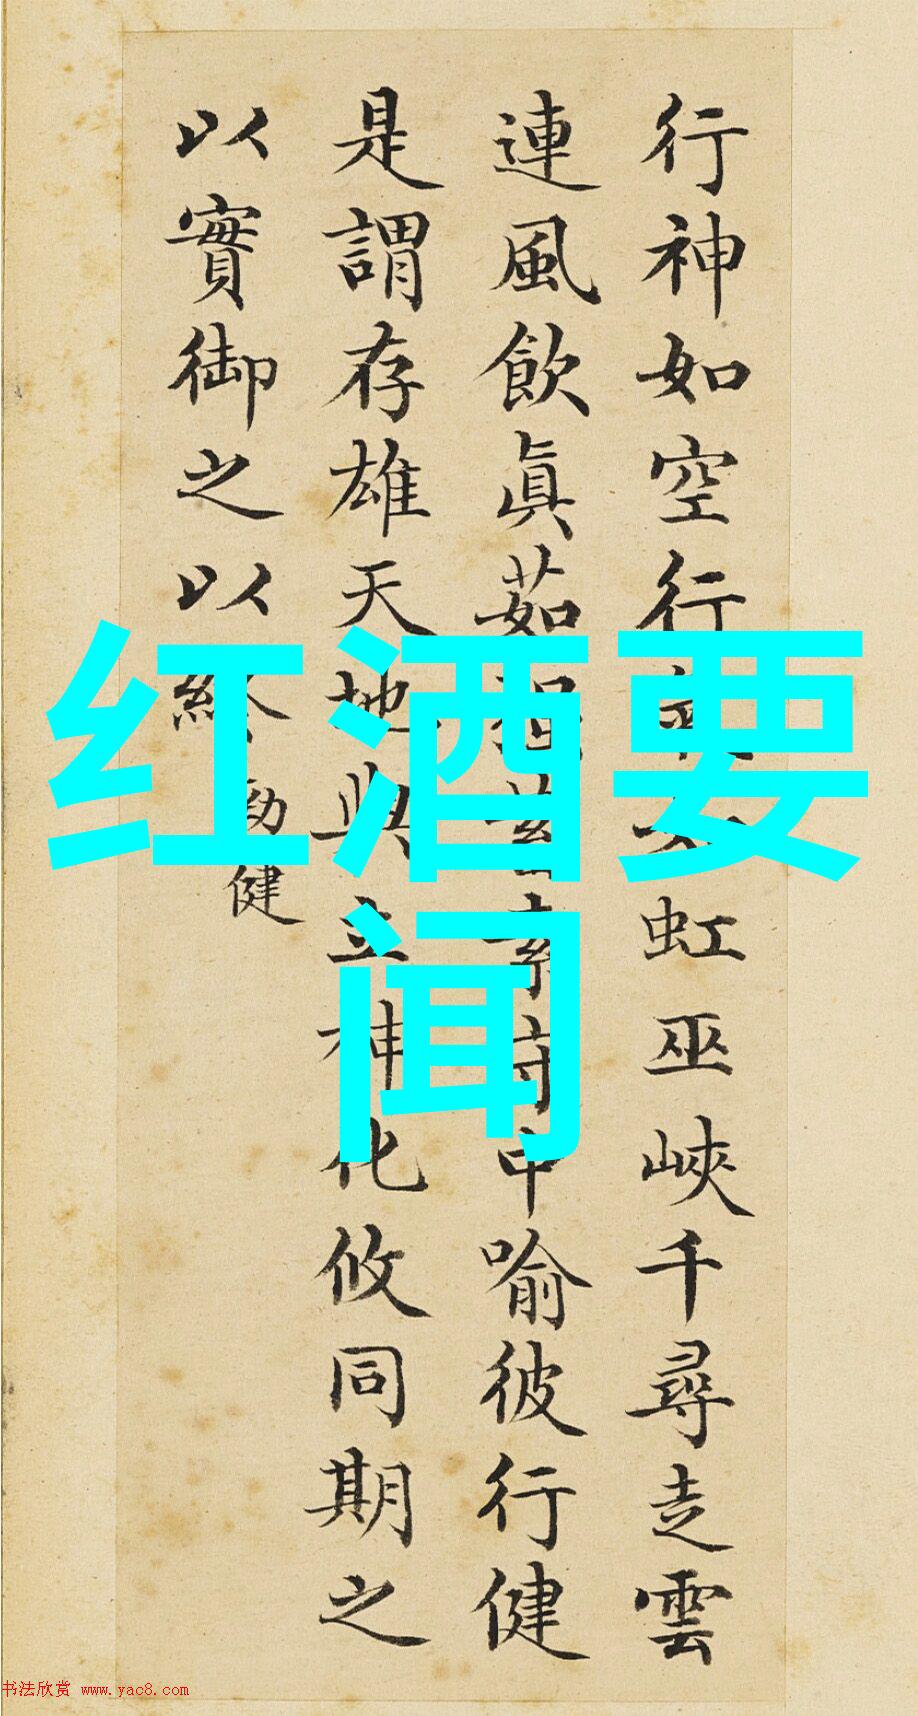 行神如空行如虹巫峽千尋走雲
連風飲眞茹蓄素守中喻彼行健
是謂存雄天地與立神化攸同期之
以實御之以終
勁健
红酒要
闻
书法欣赏 www.yac8.com